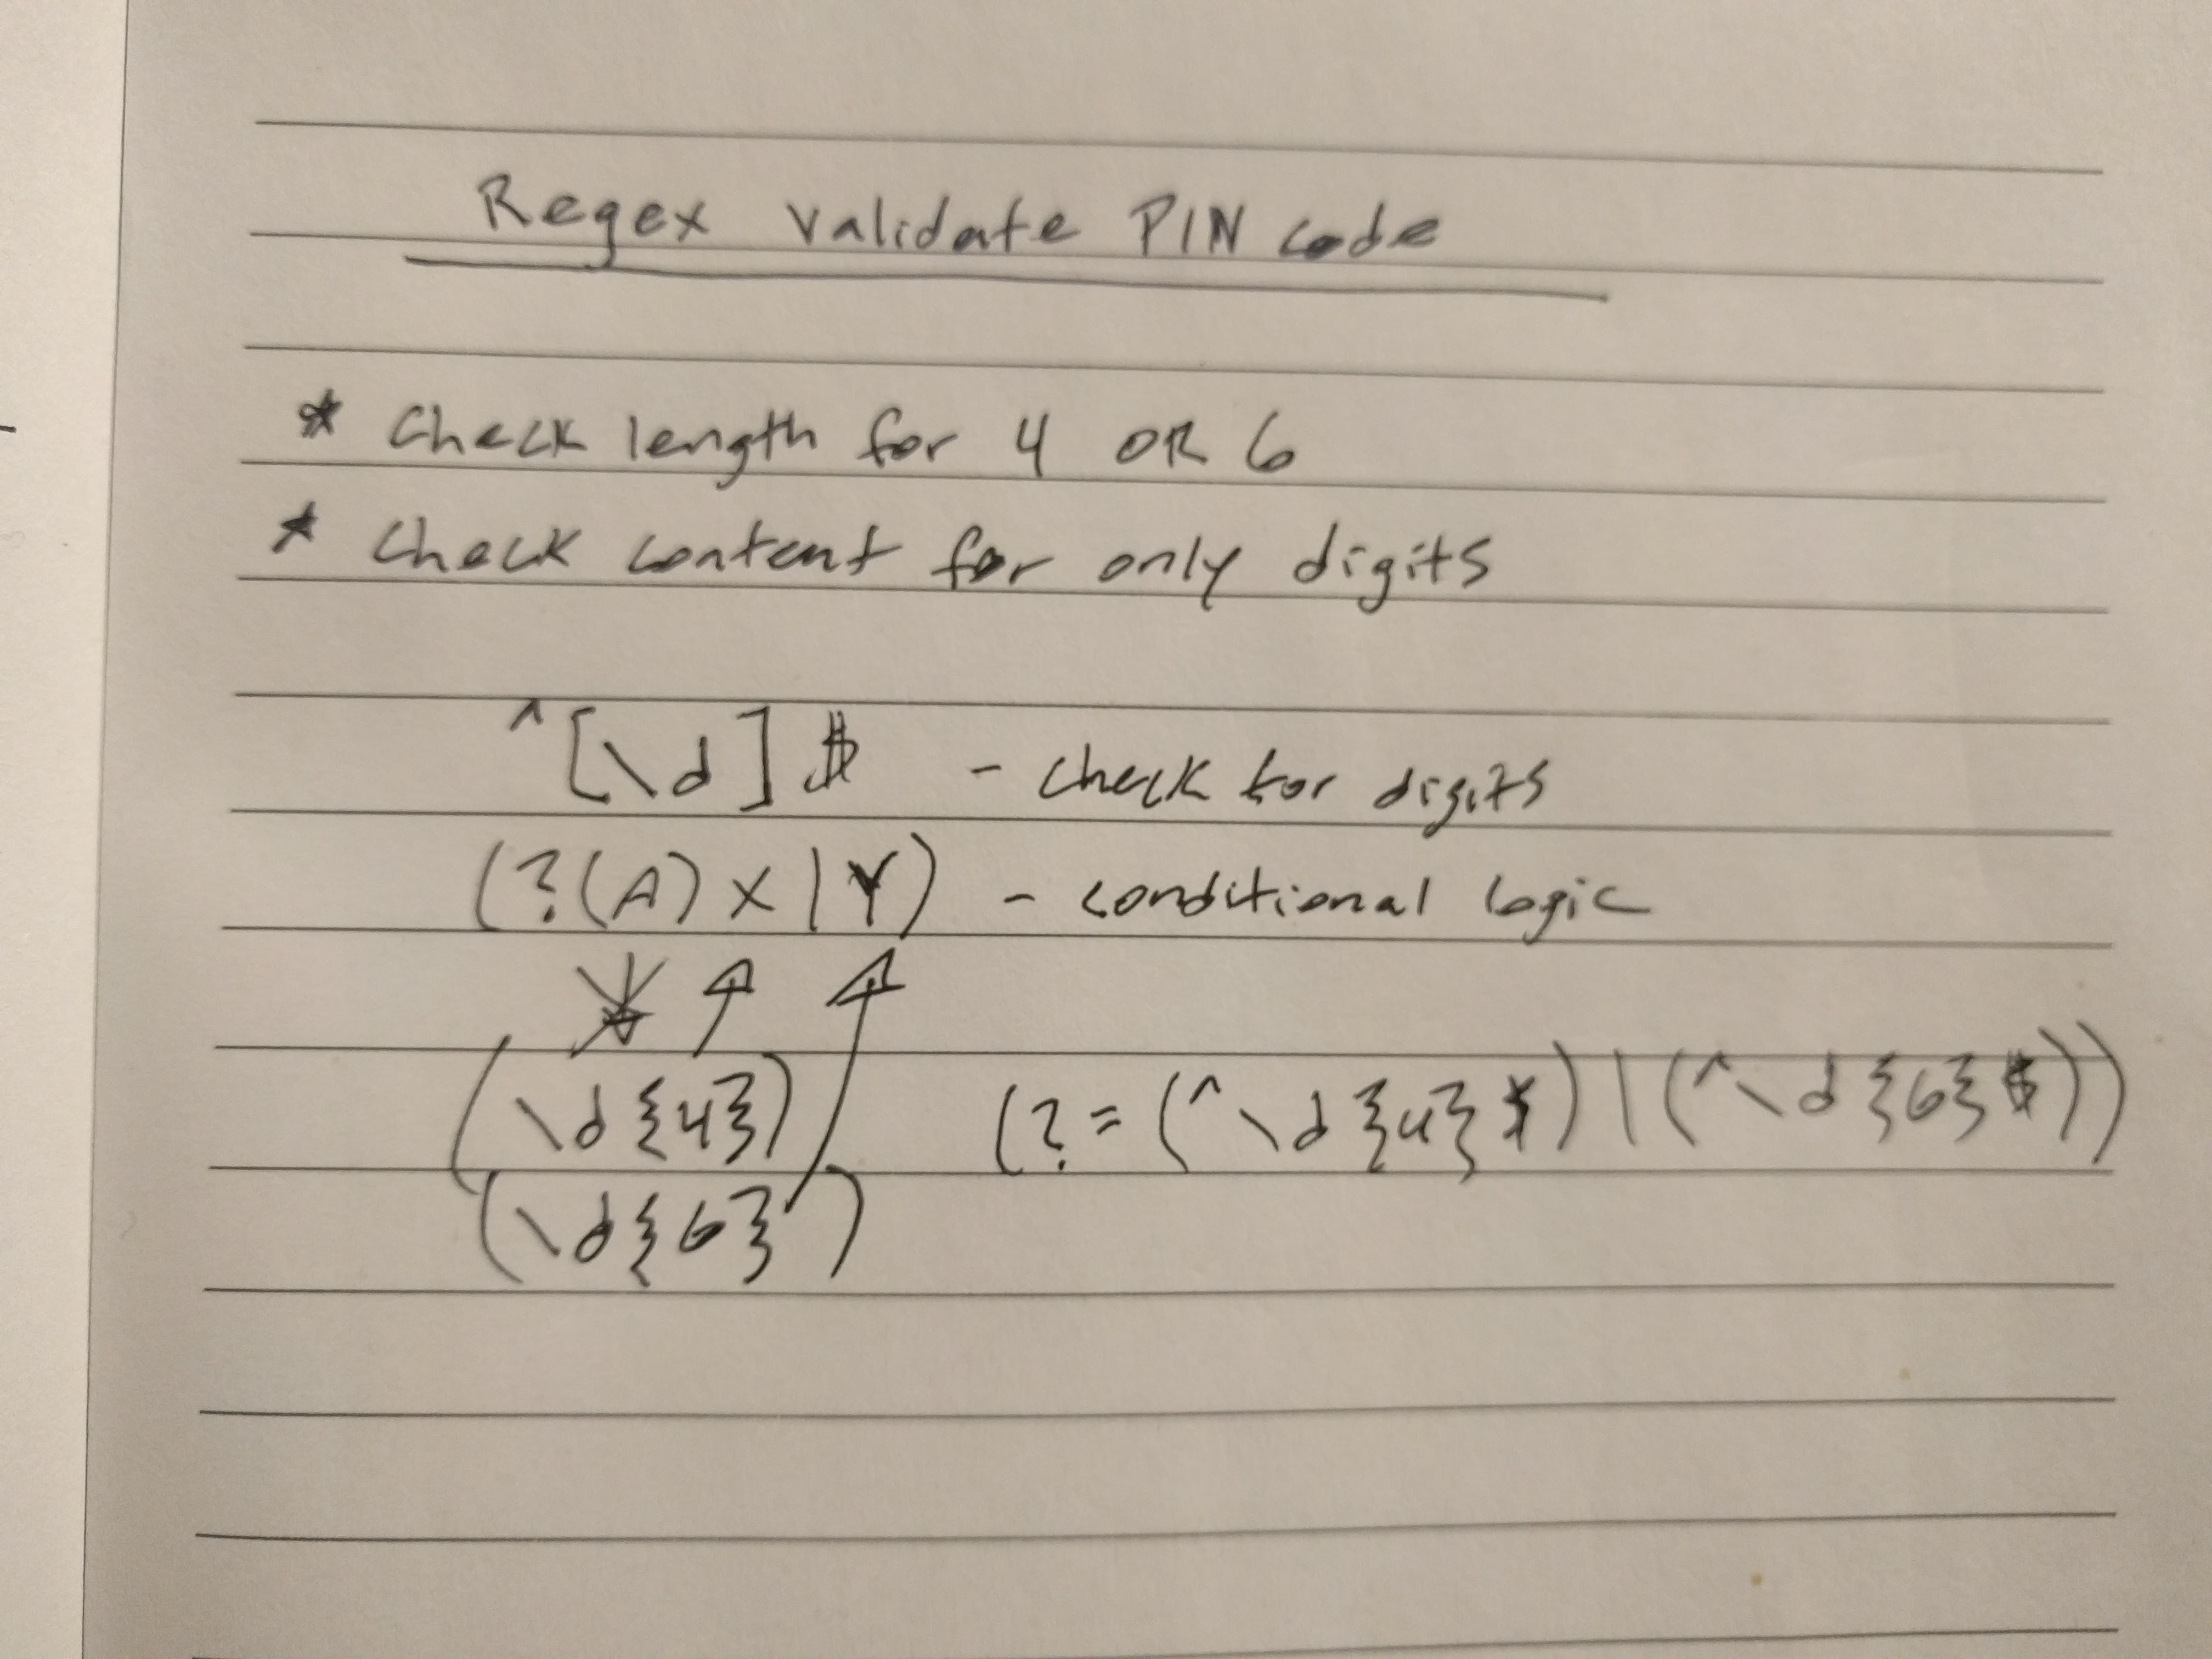 Regex validate PIN code
* Check length for 4 OR 6
* Check content for only digits
^[\d]$ - check for digits
(?(A)X|Y) - conditional logic
(\d{4}) (?=(^\d{4}$)|(^\d{6}$))
(\d{6})